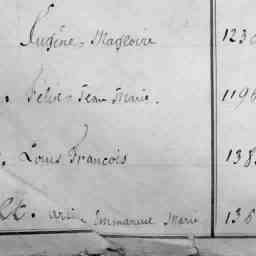 Eugène-Magloire 123
. Félix-Jean-Marie. 1196
. Louis François 138
. Emmanuel Marie 136